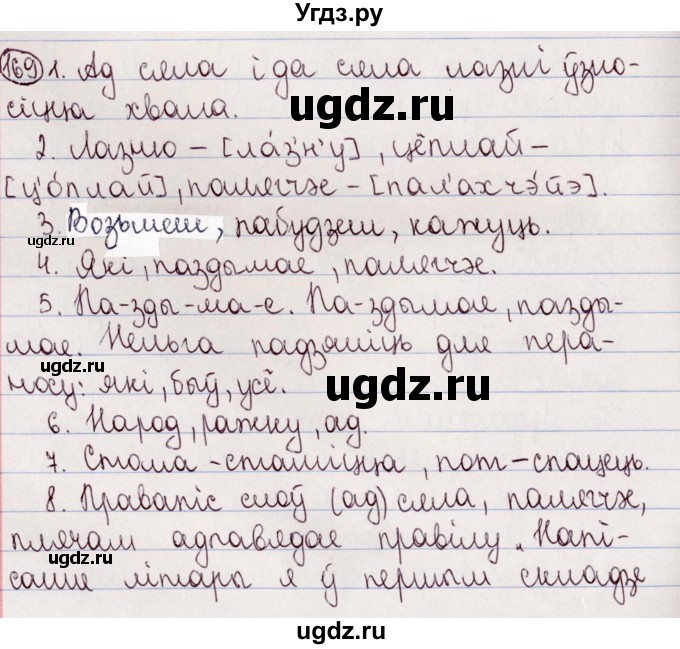 Угдз.ру
169 1. Ад сяла і да сяла лазні ўзно-
сіцца хвала.
ugdz.ru
2. Лазню – [ла́з'н'у], цёплай –
[ц'о́плай], палягчэе – [пал'ахчэ́йэ].
3. Возьмеш, пабудзеш, кажуць.
ugdz.ru
4. Які, паздымае, палягчэе.
5. Па-зды-ма-е. Па-здымае, пазды-
мае. Нельга падзяліць для пера-
носу: які, быў, усё.
ugdz.ru
ugdz.ru
6. Народ, ражну, ад.
7. Стома – стаміцца, пот – спацець.
8. Правапіс слоў (ад) сяла, палягчэе,
ugdz.ru
плячам адпавядае правілу „Напі-
санне літары я ў першым складзе
ugdz.ru